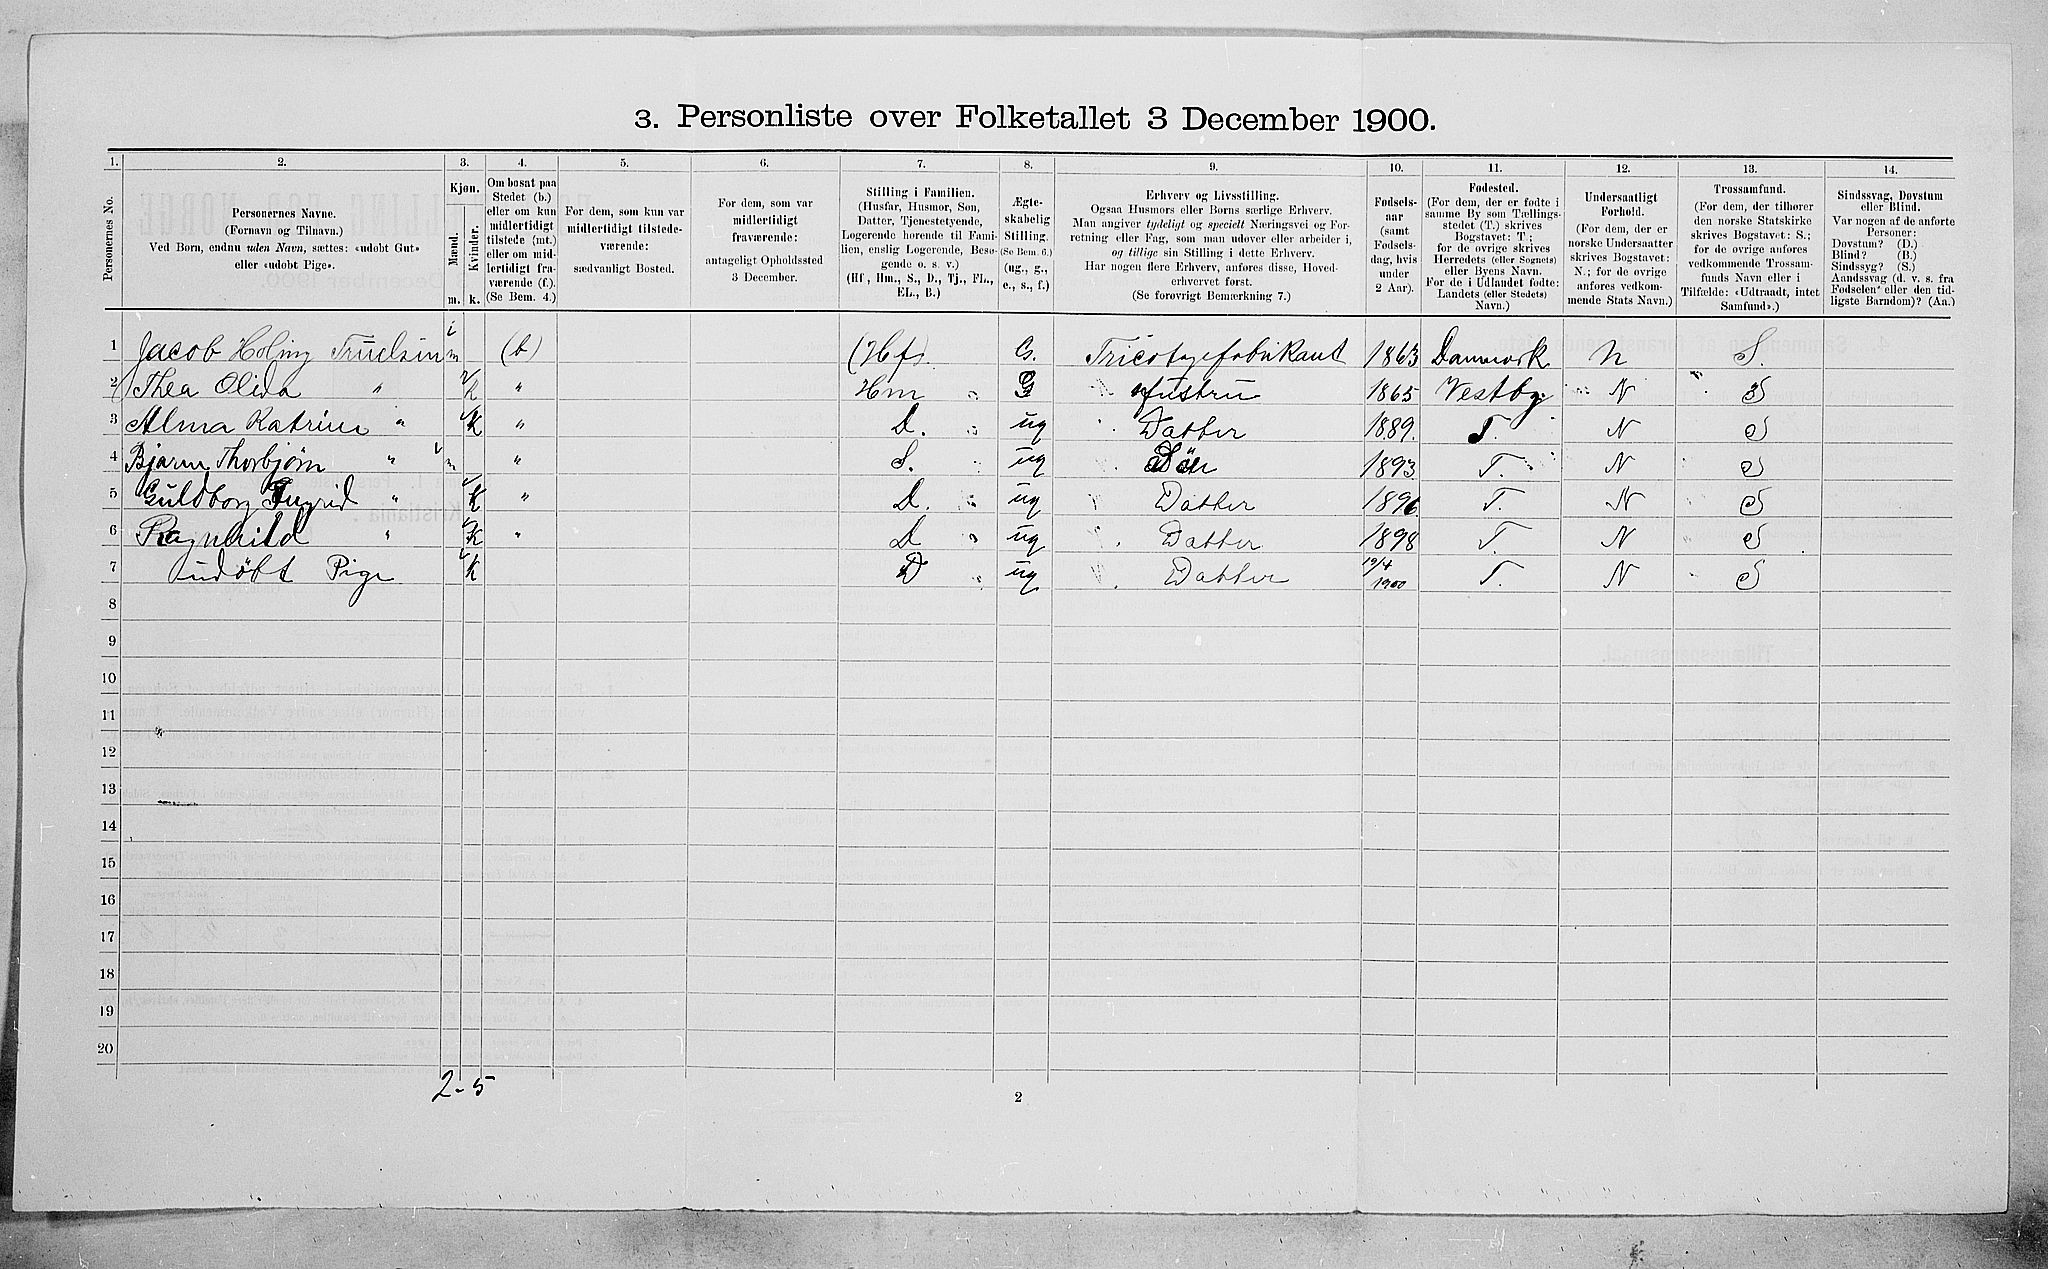 3. Personliste over Folketallet 3 December 1900.
1. 2. 3. 4. 5. 6. 7. 8. 9. 10. 11. 12. 13. 14.
Personernes No.
Personernes Navne.
(Fornavn og Tilnavn.)
Ved Børn, endnu uden Navn, sættes: «udøbt Gut»
eller «udøbt Pige».
Kjøn.
Mænd.
Kvinder.
m. k.
Om bosat paa
Stedet (b.)
eller om kun
midlertidigt
tilstede (mt.)
eller om mid-
lertidigt fra-
værende (f.).
(Se Bem. 4.)
For dem, som kun var
midlertidigt tilstede-
værende:
sædvanligt Bosted.
For dem, som var
midlertidigt
fraværende:
antageligt Opholdssted
3 December.
Stilling i Familien.
(Husfar, Husmor, Søn,
Datter, Tjenestetyende,
Logerende hørende til Fami-
lien, enslig Logerende, Besø-
gende o. s. v.)
(Hf., Hm., S., D., Tj., FL.,
EL., B.)
Ægte-
skabelig
Stilling.
(Se Bem. 6.)
(ug., g.,
e., s., f.)
Erhverv og Livsstilling.
Ogsaa Husmors eller Børns særlige Erhverv.
Man angiver tydeligt og specielt Næringsvei og For-
retning eller Fag, som man udøver eller arbeider i,
og tillige sin Stilling i dette Erhverv.
Har nogen flere Erhverv, anføres disse, Hoved-
erhvervet først.
(Se forøvrigt Bemærkning 7.)
Fødsels-
aar
(samt
Fødsels-
dag, hvis
under
2 Aar).
Fødested.
(For dem, der er fødte i
samme By som Tællings-
stedet (T.) skrives
Bogstavet: T.;
for de øvrige skrives
Herredets (eller Sognets)
eller Byens Navn.
For de i Udlandet fødte:
Landets (eller Stedets)
Navn.)
Undersaatligt
Forhold.
(For dem, der er
norske Undersaatter
skrives Bogstavet:
N.; for de øvrige
anføres vedkom-
mende Stats Navn.)
Trossamfund.
(For dem, der tilhører
den norske Statskirke
skrives Bogstavet: S.;
for de øvrige anføres
vedkommende Trossam-
funds Navn eller i
Tilfælde: «Udtraadt, intet
Samfund».)
Sindssvag, Døvstum
eller Blind.
Var nogen af de anførte
Personer:
Døvstum? (D.)
Blind? (B.)
Sindssyg? (S.)
Aandssvag (d. v. s. fra
Fødselen eller den tid-
ligste Barndom)? (Aa.)
1 Jacob Holing Truelsen m (b) (Hf) G. Tricotagefabrikant 1863 Danmark N S.
2 Thea Olida " K " Hm G " Hustru 1865 Vestby N S
3 Alma Katrine " K " D. ug Datter 1889. T. N S
4 Bjarne Thorbjørn " m " S. ug Søn 1893 T. N S
5 Guldborg Ingrid " K " D. ug Datter 1896. T. N S
6 Ragnhild " K " D ug Datter 1898 T. N S
7 udøbt Pige K D ug Datter 19/4 1900 T. N S
8
9
10
11
12
13
14
15
16
17
18
19
20
2-5
2